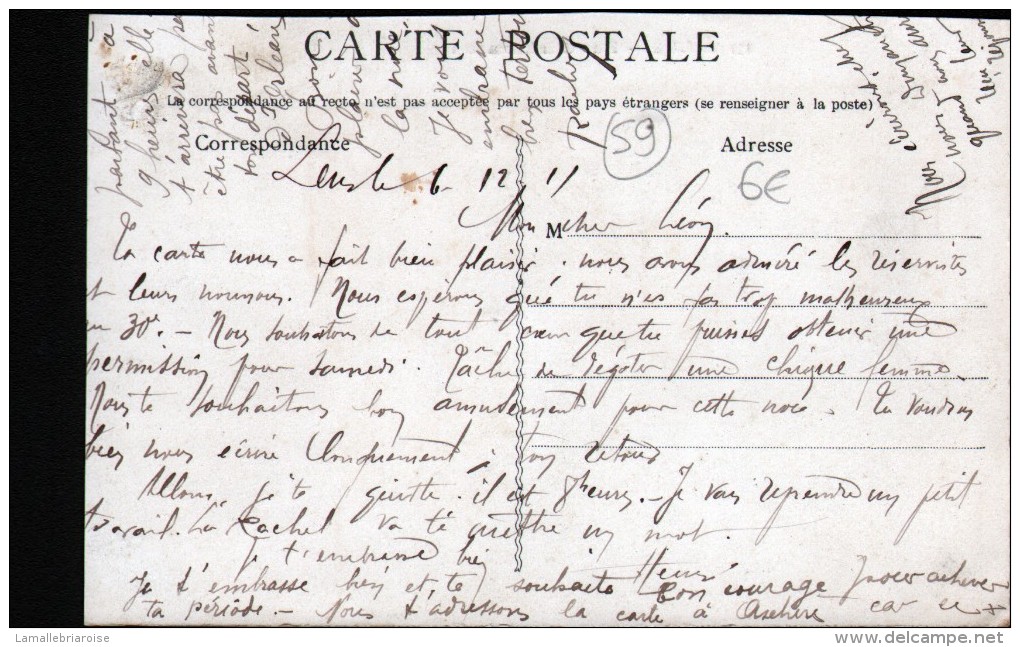 CARTE POSTALE
La correspondance au recto n'est pas acceptée par tous les pays étrangers (se renseigner à la poste)
Correspondance
Adresse
59
6€
6 - 12 - 11
M
Mon cher Léon,
Ta carte nous a fait bien plaisir. nous avons admiré les réservistes
et leurs nounous. Nous espérons que tu n'es pas trop malheureux
au 30e. - Nous souhaitons de tout cœur que tu puisses obtenir une
permission pour samedi. Tâche de dégoter une chique femme.
Nous te souhaitons bon amusement pour cette noce. Tu voudras
bien nous écrire longuement à ton retour
Allons, je te quitte. il est 8 heures. - Je vais reprendre un petit
travail. La Rachel va te mettre un mot.
Je t'embrasse bien
Henri
Je t'embrasse bien et te souhaite bon courage pour achever
ta période. - Nous t'adressons la carte à car ce
partant à
9 heures elle
t'arrivera
être pas avant
ton départ
la noce
Je vous
embrasse
Lamallebriaroise
www.delcampe.net